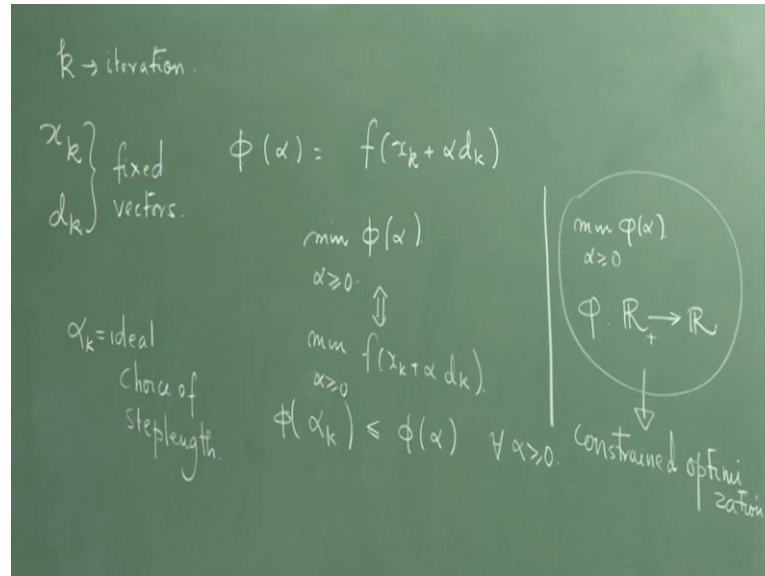 k → iteration.
x_k } fixed
d_k } vectors.
ϕ(α) = f(x_k + αd_k)
min ϕ(α)
α≥0.
⇕
min f(x_k + α d_k)
α≥0
α_k = ideal
choice of
steplength.
ϕ(α_k) ≤ ϕ(α) ∀ α≥0.
min φ(α)
α≥0
φ. ℝ₊ → ℝ
↓
Constrained optimi
zation